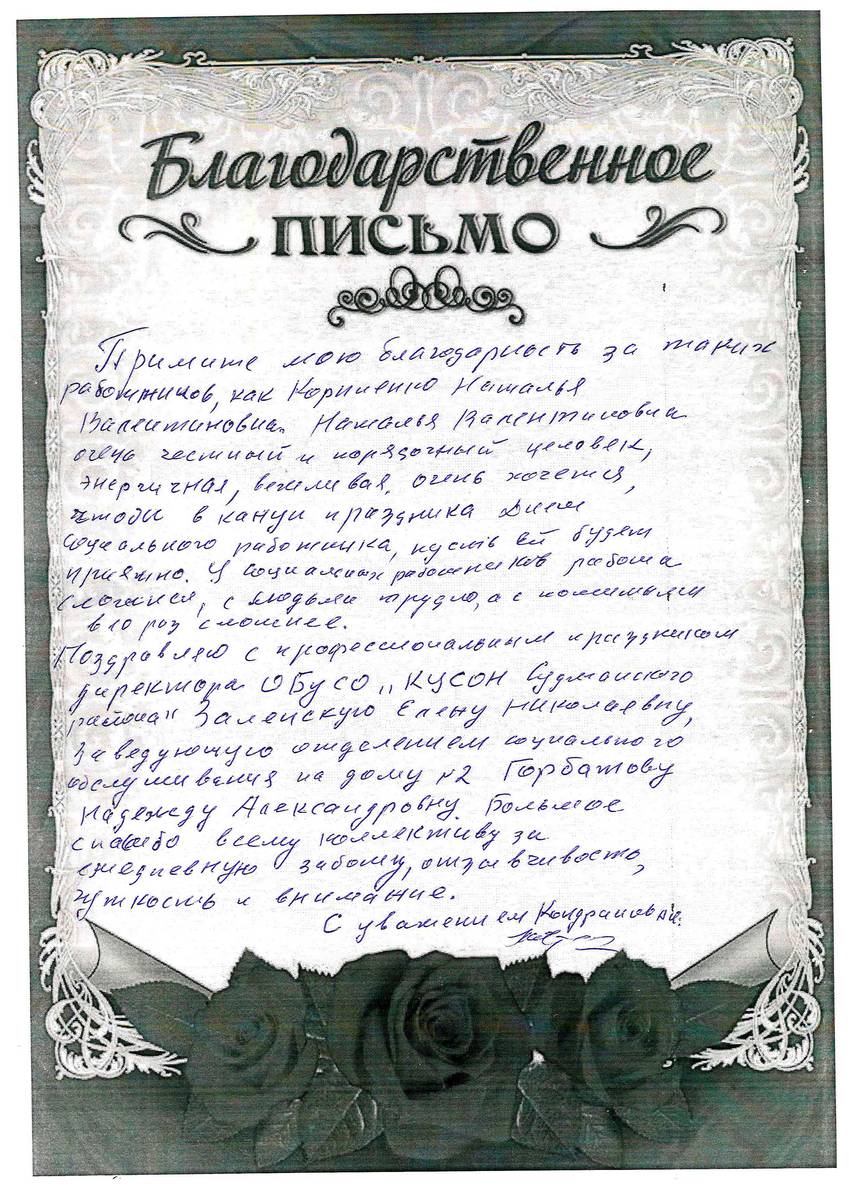 Благодарственное
ПИСЬМО
Примите мою благодарность за таких
работников, как Корниенко Наталья
Валентиновна. Наталья Валентиновна
очень честный и порядочный человек,
энергичная, вежливая, очень хочется,
чтобы в канун праздника Днем
социального работника, пусть ей будет
приятно. У социальных работников работа
сложная, с людьми трудно, а с пожилыми
в 10 раз сложнее.
Поздравляю с профессиональным праздником
директора ОБУСО „КЦСОН Суджанского
района" Залейскую Елену Николаевну,
Заведующую отделением социального
обслуживания на дому №2 Горбатову
Надежду Александровну. Большое
спасибо всему коллективу за
ежедневную заботу, отзывчивость,
чуткость и внимание.
С уважением